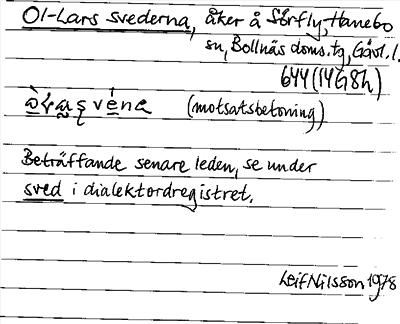 Ol-Lars svederna, åker å Sörfly, Hanebo
sn, Bollnäs doms. tg, Gävl. l.
644 (14G8h)
(motsatsbetoning)
Beträffande senare leden, se under
sved i dialektordregistret.
Leif Nilsson 1978